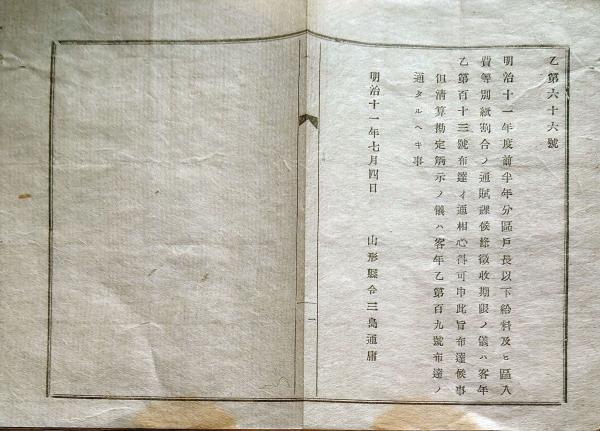 乙第六十六號
明治十一年度前半年分區戸長以下給料及ヒ區入
費等別紙割合ノ通賦課候條徴收期限ノ儀ハ客年
乙第百十三號布達ノ通相心得可申此旨布達候事
但清算勘定 示ノ儀ハ客年乙第百九號布達ノ
通タルヘキ事
明治十一年七月四日
山形縣令三島通庸
一